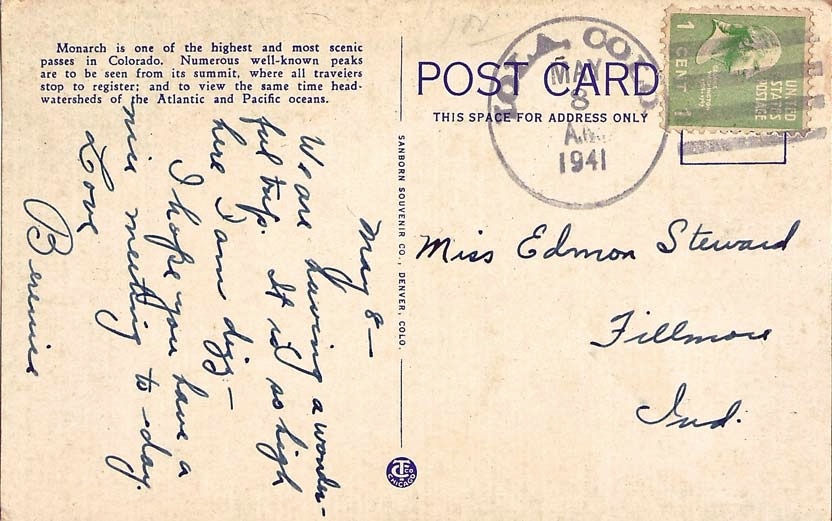 Monarch is one of the highest and most scenic
passes in Colorado. Numerous well-known peaks
are to be seen from its summit, where all travelers
stop to register; and to view the same time head-
watersheds of the Atlantic and Pacific oceans.
May 8—
We are having a wonder-
ful trip. It is so high
here I am dizzy—
I hope you have a
nice meeting to-day.
Love
Bernice
SANBORN SOUVENIR CO., DENVER, COLO.
CT CO
CHICAGO
POST CARD
THIS SPACE FOR ADDRESS ONLY
COLO
MAY
8
A.M.
1941
1 CENT 1
UNITED
STATES
POSTAGE
Miss Edmon Steward
Fillmore
Ind.